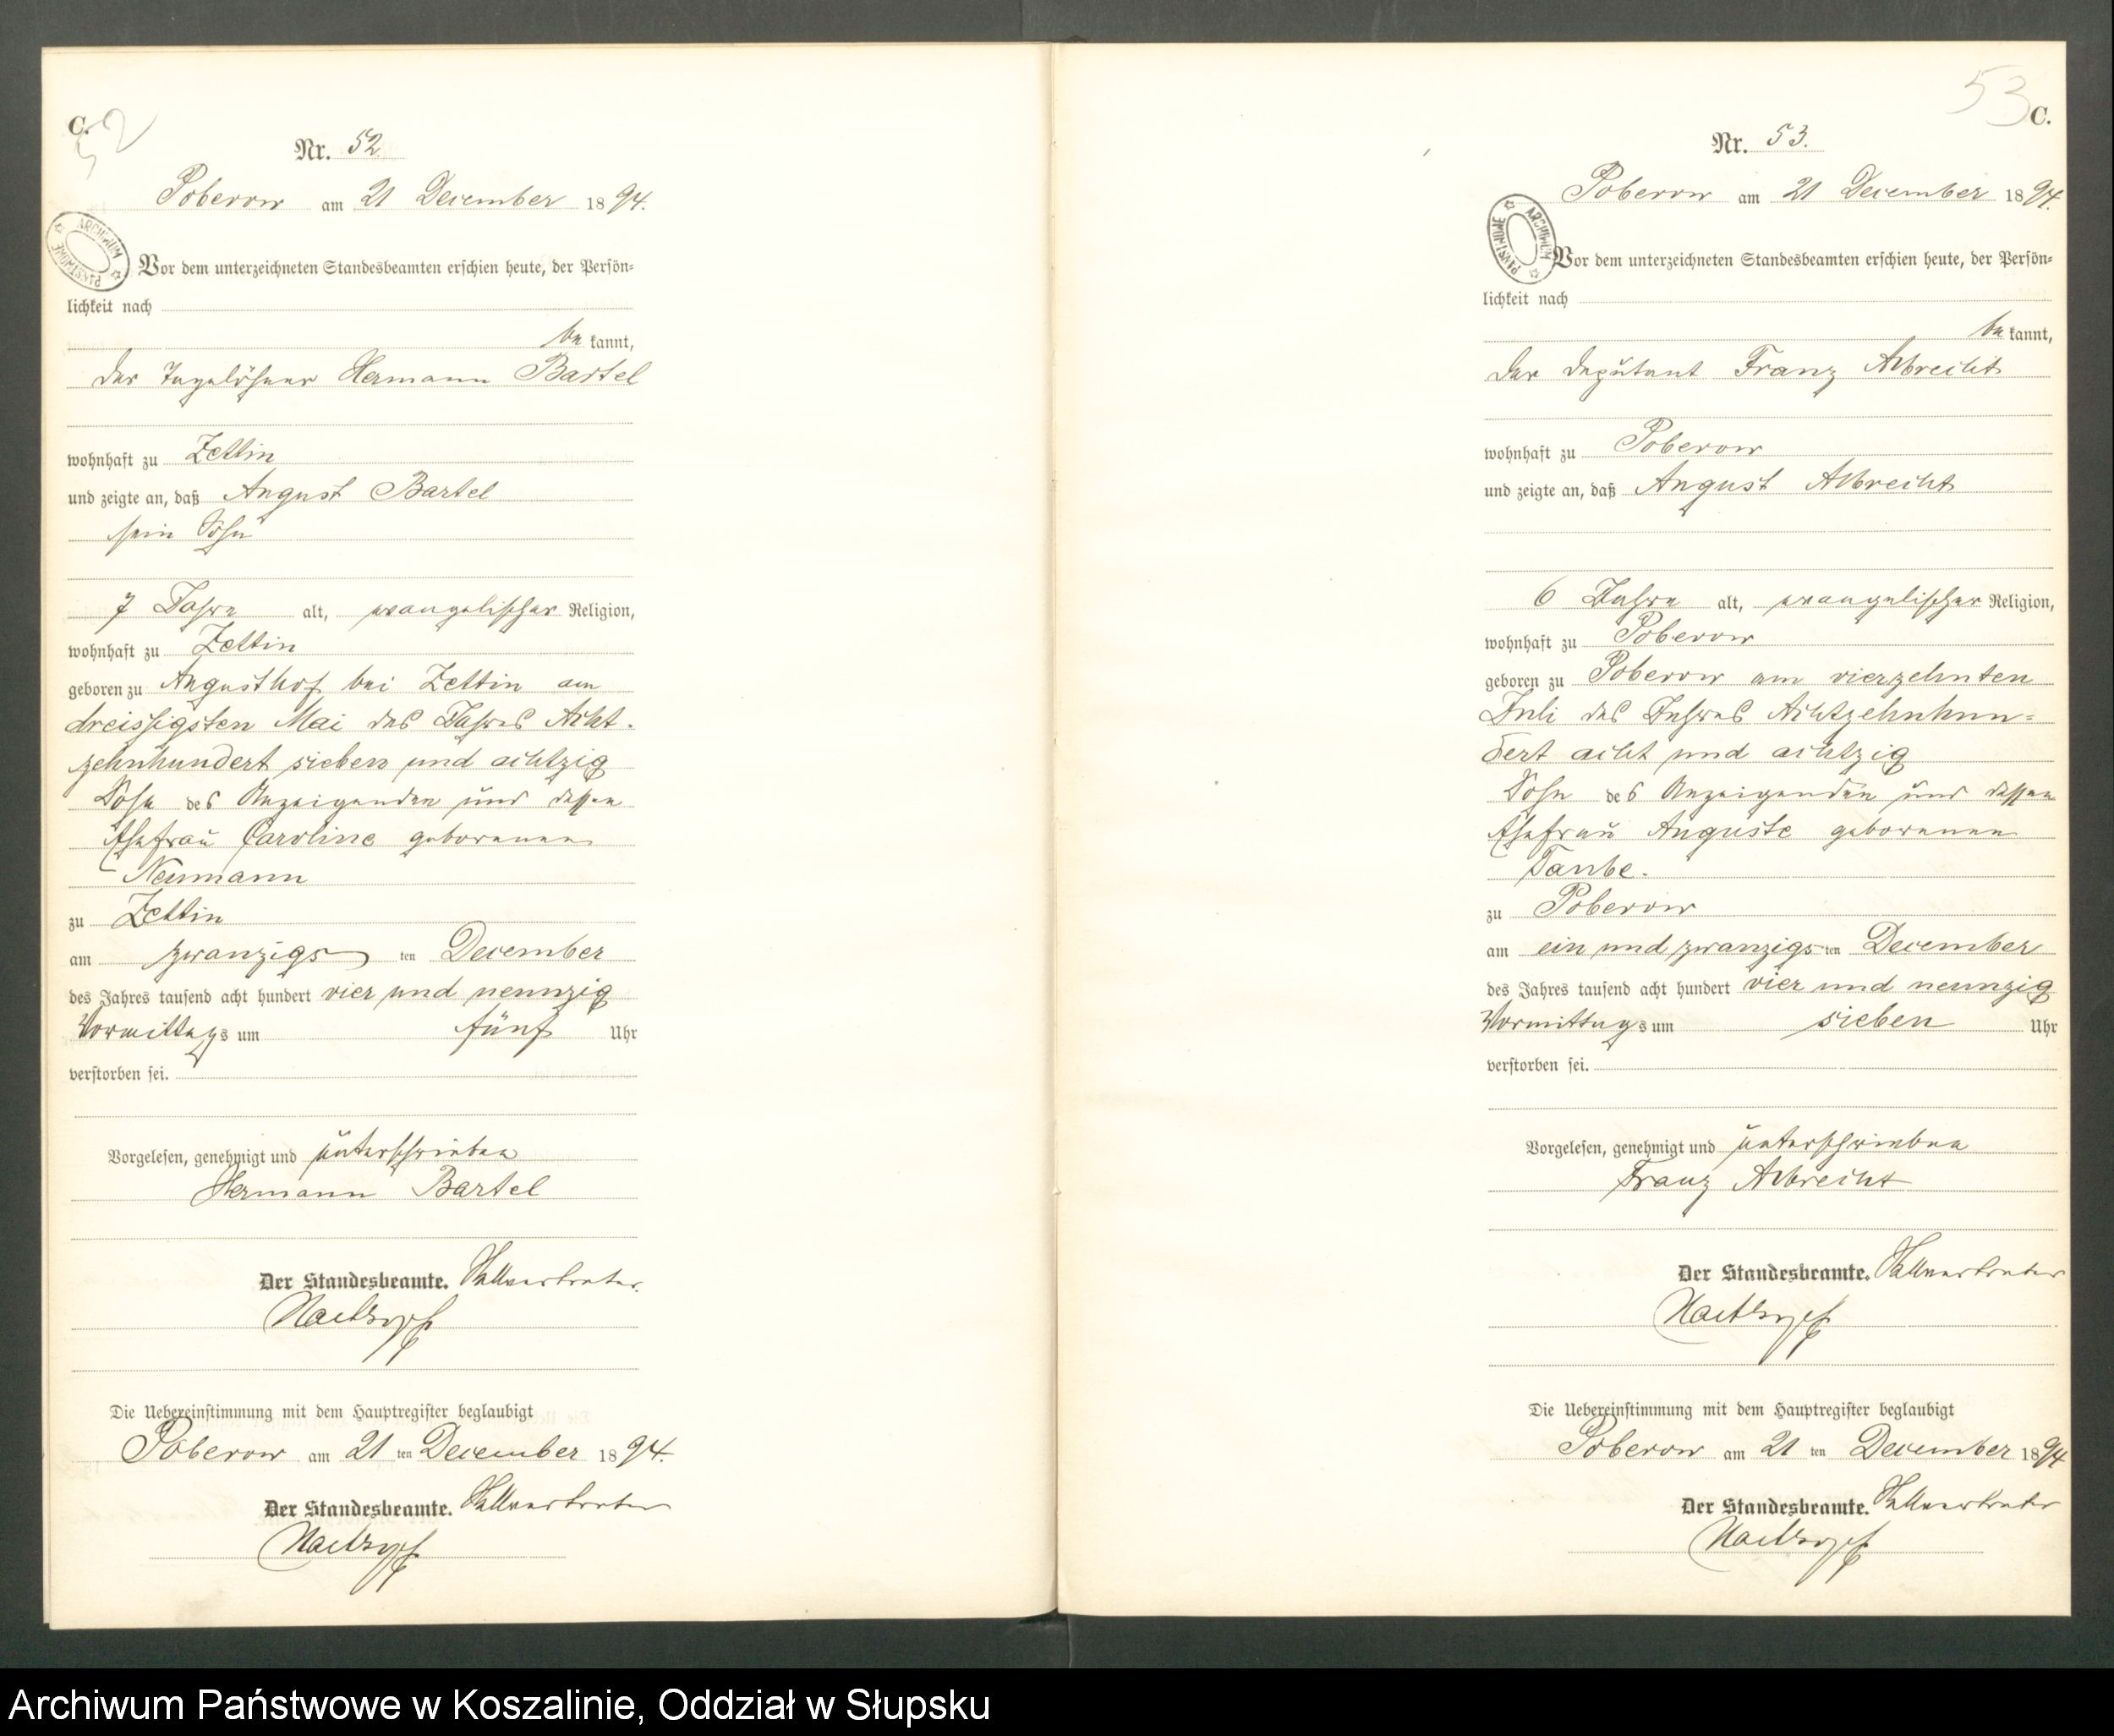 C.
52
Nr. 52.
Poberow am 21 December 1894.
ARCHIWUM PAŃSTWOWE
Vor dem unterzeichneten Standesbeamten erschien heute, der Persön=
lichkeit nach
be kannt,
der Tagelöhner Hermann Bartel
wohnhaft zu Zettin
und zeigte an, daß August Bartel
sein Sohn
7 Jahre alt, evangelischer Religion,
wohnhaft zu Zettin
geboren zu Augusthof bei Zettin am
dreissigsten Mai des Jahres Acht-
zehnhundert sieben und achtzig
Sohn des Anzeigenden und dessen
Ehefrau Caroline geborenen
Neumann
zu Zettin
am zwanzigs ten December
des Jahres tausend acht hundert vier und neunzig
Vormittags um fünf Uhr
verstorben sei.
Vorgelesen, genehmigt und unterschrieben
Hermann Bartel
Der Standesbeamte. Stellvertreter.
Die Uebereinstimmung mit dem Hauptregister beglaubigt
Poberow am 21 ten December 1894.
Der Standesbeamte. Stellvertreter
53
C.
Nr. 53.
Poberow am 21 December 1894.
ARCHIWUM PAŃSTWOWE
Vor dem unterzeichneten Standesbeamten erschien heute, der Persön=
lichkeit nach
be kannt,
der Deputant Franz Albrecht
wohnhaft zu Poberow
und zeigte an, daß August Albrecht
6 Jahre alt, evangelischer Religion,
wohnhaft zu Poberow
geboren zu Poberow am vierzehnten
Juli des Jahres Achtzehnhun=
dert acht und achtzig
Sohn des Anzeigenden und dessen
Ehefrau Auguste geborenen
Taube.
zu Poberow
am ein und zwanzigs ten December
des Jahres tausend acht hundert vier und neunzig
Vormittags um sieben Uhr
verstorben sei.
Vorgelesen, genehmigt und unterschrieben
Franz Albrecht
Der Standesbeamte. Stellvertreter
Die Uebereinstimmung mit dem Hauptregister beglaubigt
Poberow am 21 ten December 1894
Der Standesbeamte. Stellvertreter
Archiwum Państwowe w Koszalinie, Oddział w Słupsku